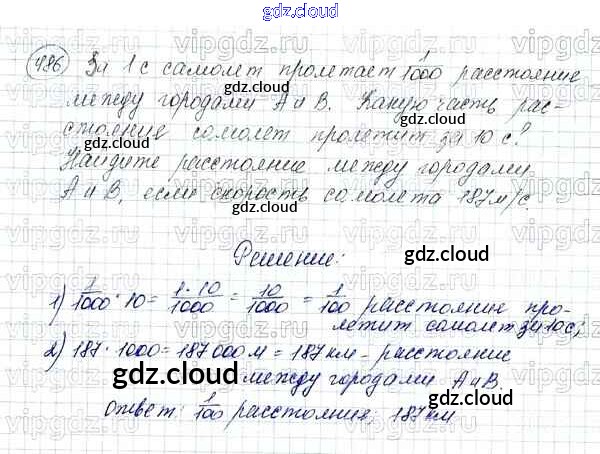 gdz.cloud
486 За 1 с самолет пролетает 1/1000 расстояние
между городами А и В. Какую часть рас-
стояние самолет пролетит за 10 с?
Найдите расстояние между городами
А и В, если скорость самолета 187 м/с.
Решение:
1) 1/1000 · 10 = 1·10/1000 = 10/1000 = 1/100 расстояние про-
летит самолет за 10 с;
2) 187 · 1000 = 187 000 м = 187 км – расстояние
между городами А и В.
Ответ: 1/100 расстояние; 187 км